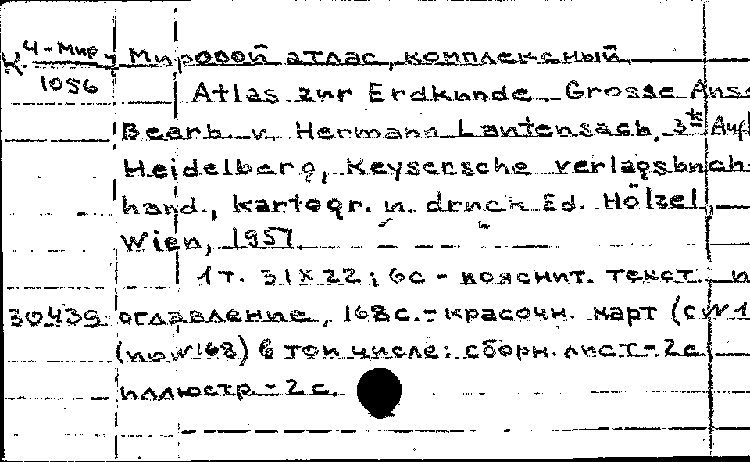 К 4-Мир
1056
Мировой атлас, комплексный
Atlas zur Erdkunde. Grosse Ausg
Bearb. v. Hermann Lautensach. 3te Aufl
Heidelberg, Keysersche verlagsbuch-
hand., kartogr. u. druck Ed. Hölzel,
Wien, 1957.
1 т. 31x22; 6с - пояснит. текст и
30439 оглавление, 168с.- красочн. карт (с №1
(по №168) в том числе: сборн. лист - 2с
иллюстр - 2с.